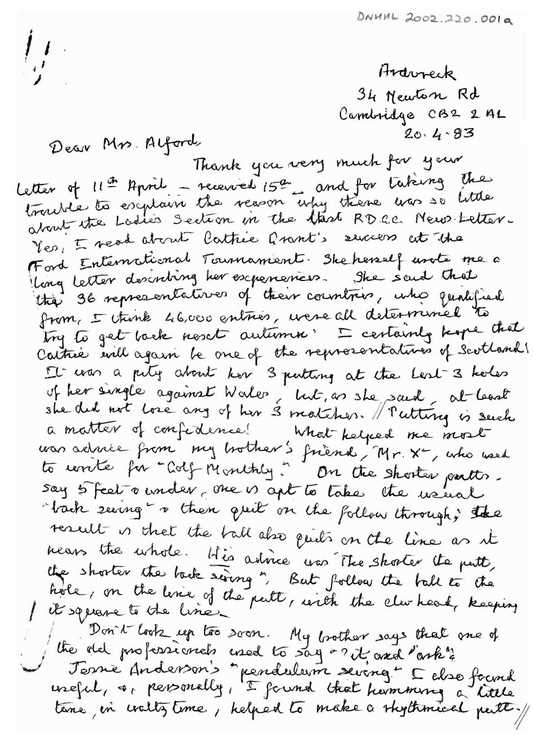 DNHHL 2002.220.001a
Ardvreck
34 Newton Rd
Cambridge CB2 2AL
20.4.83
Dear Mrs. Alford,
Thank you very much for your
letter of 11th April – received 15th – and for taking the
trouble to explain the reason why there was so little
about the Ladies Section in the last R.D.G.C. News-Letter.
Yes, I read about Cathie Grant's success at the
Ford International Tournament. She herself wrote me a
long letter describing her experiences. She said that
the 36 representatives of their countries, who qualified
from, I think 46,000 entries, were all determined to
try to get back next autumn! I certainly hope that
Cathie will again be one of the representatives of Scotland!
It was a pity about her 3 putting at the last 3 holes
of her single against Wales, but, as she said, at least
she did not lose any of her 3 matches. // Putting is such
a matter of confidence! What helped me most
was advice from my brother's friend, "Mr. X", who used
to write for "Golf Monthly." On the shorter putts,
say 5 feet & under, one is apt to take the usual
"back swing" & then quit on the follow through; the
result is that the ball also quits on the line as it
nears the whole. His advice was "The shorter the putt,
the shorter the back swing". But follow the ball to the
hole, on the line of the putt, with the club head, keeping
it square to the line.
Don't look up too soon. My brother says that one of
the old professionals used to say "it and "ask".
Jessie Anderson's "pendulum swing" I also found
useful, &, personally, I found that humming a little
tune, in waltz time, helped to make a rhythmical putt. //